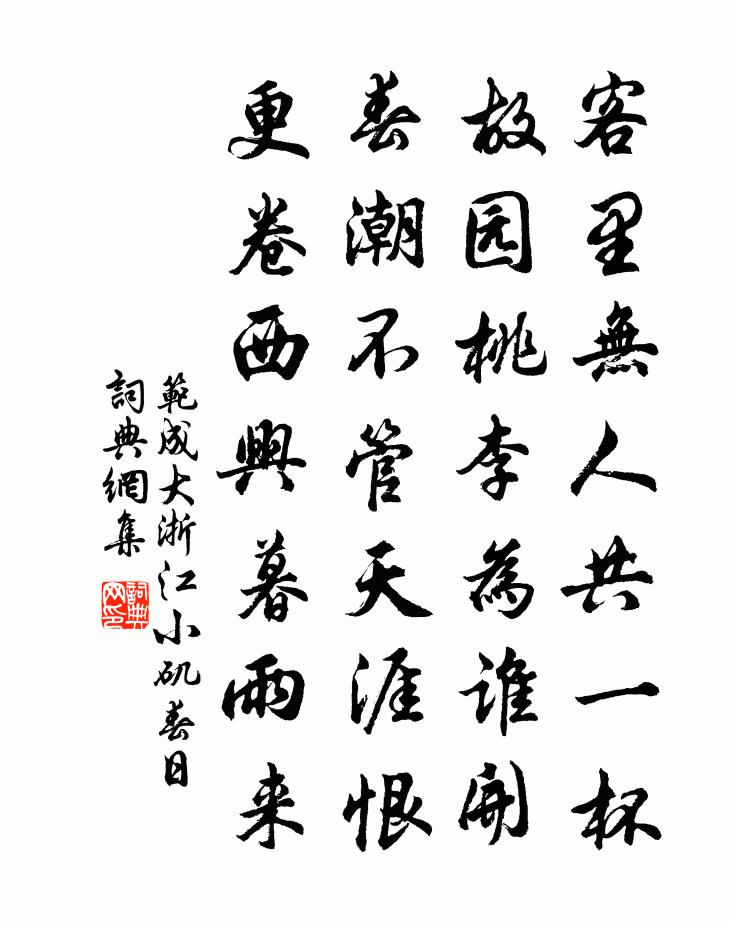 客里無人共一杯
故园桃李為谁開
春潮不管天涯恨
更卷西興暮雨来
範成大浙江小矶春日
詞典網集
詞典网印